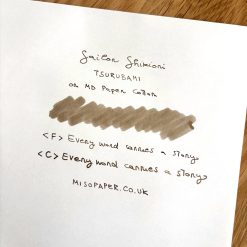 Sailor Shikiori
TSURUBAMI
on MD Paper Cotton
<F> Every word carries a story
<C> Every word carries a story
MISOPAPER.CO.UK